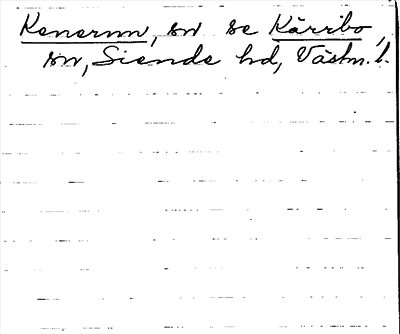 Kenernn, sn se Kärrbo,
sn, Siende hd, Västm. l.